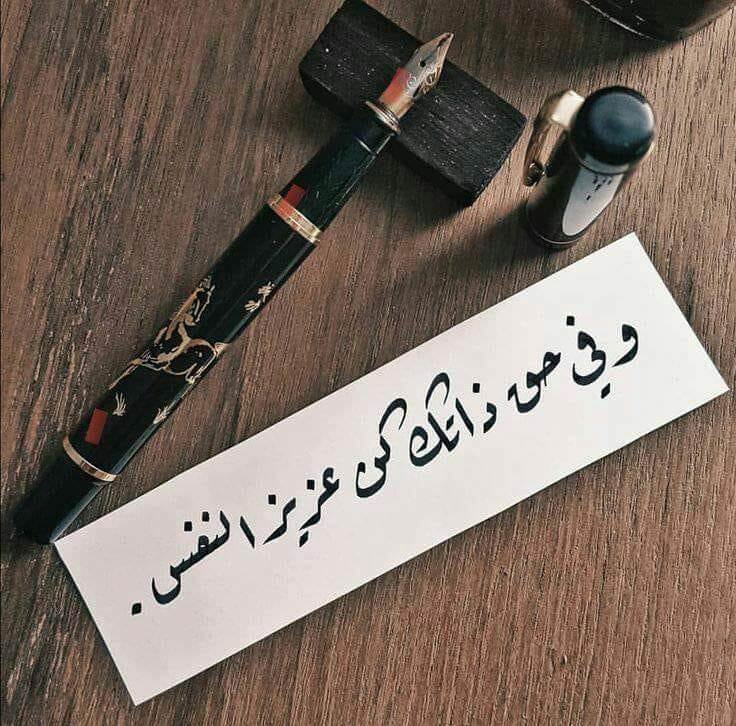 وفي حق ذاتك كن عزيز النفس .